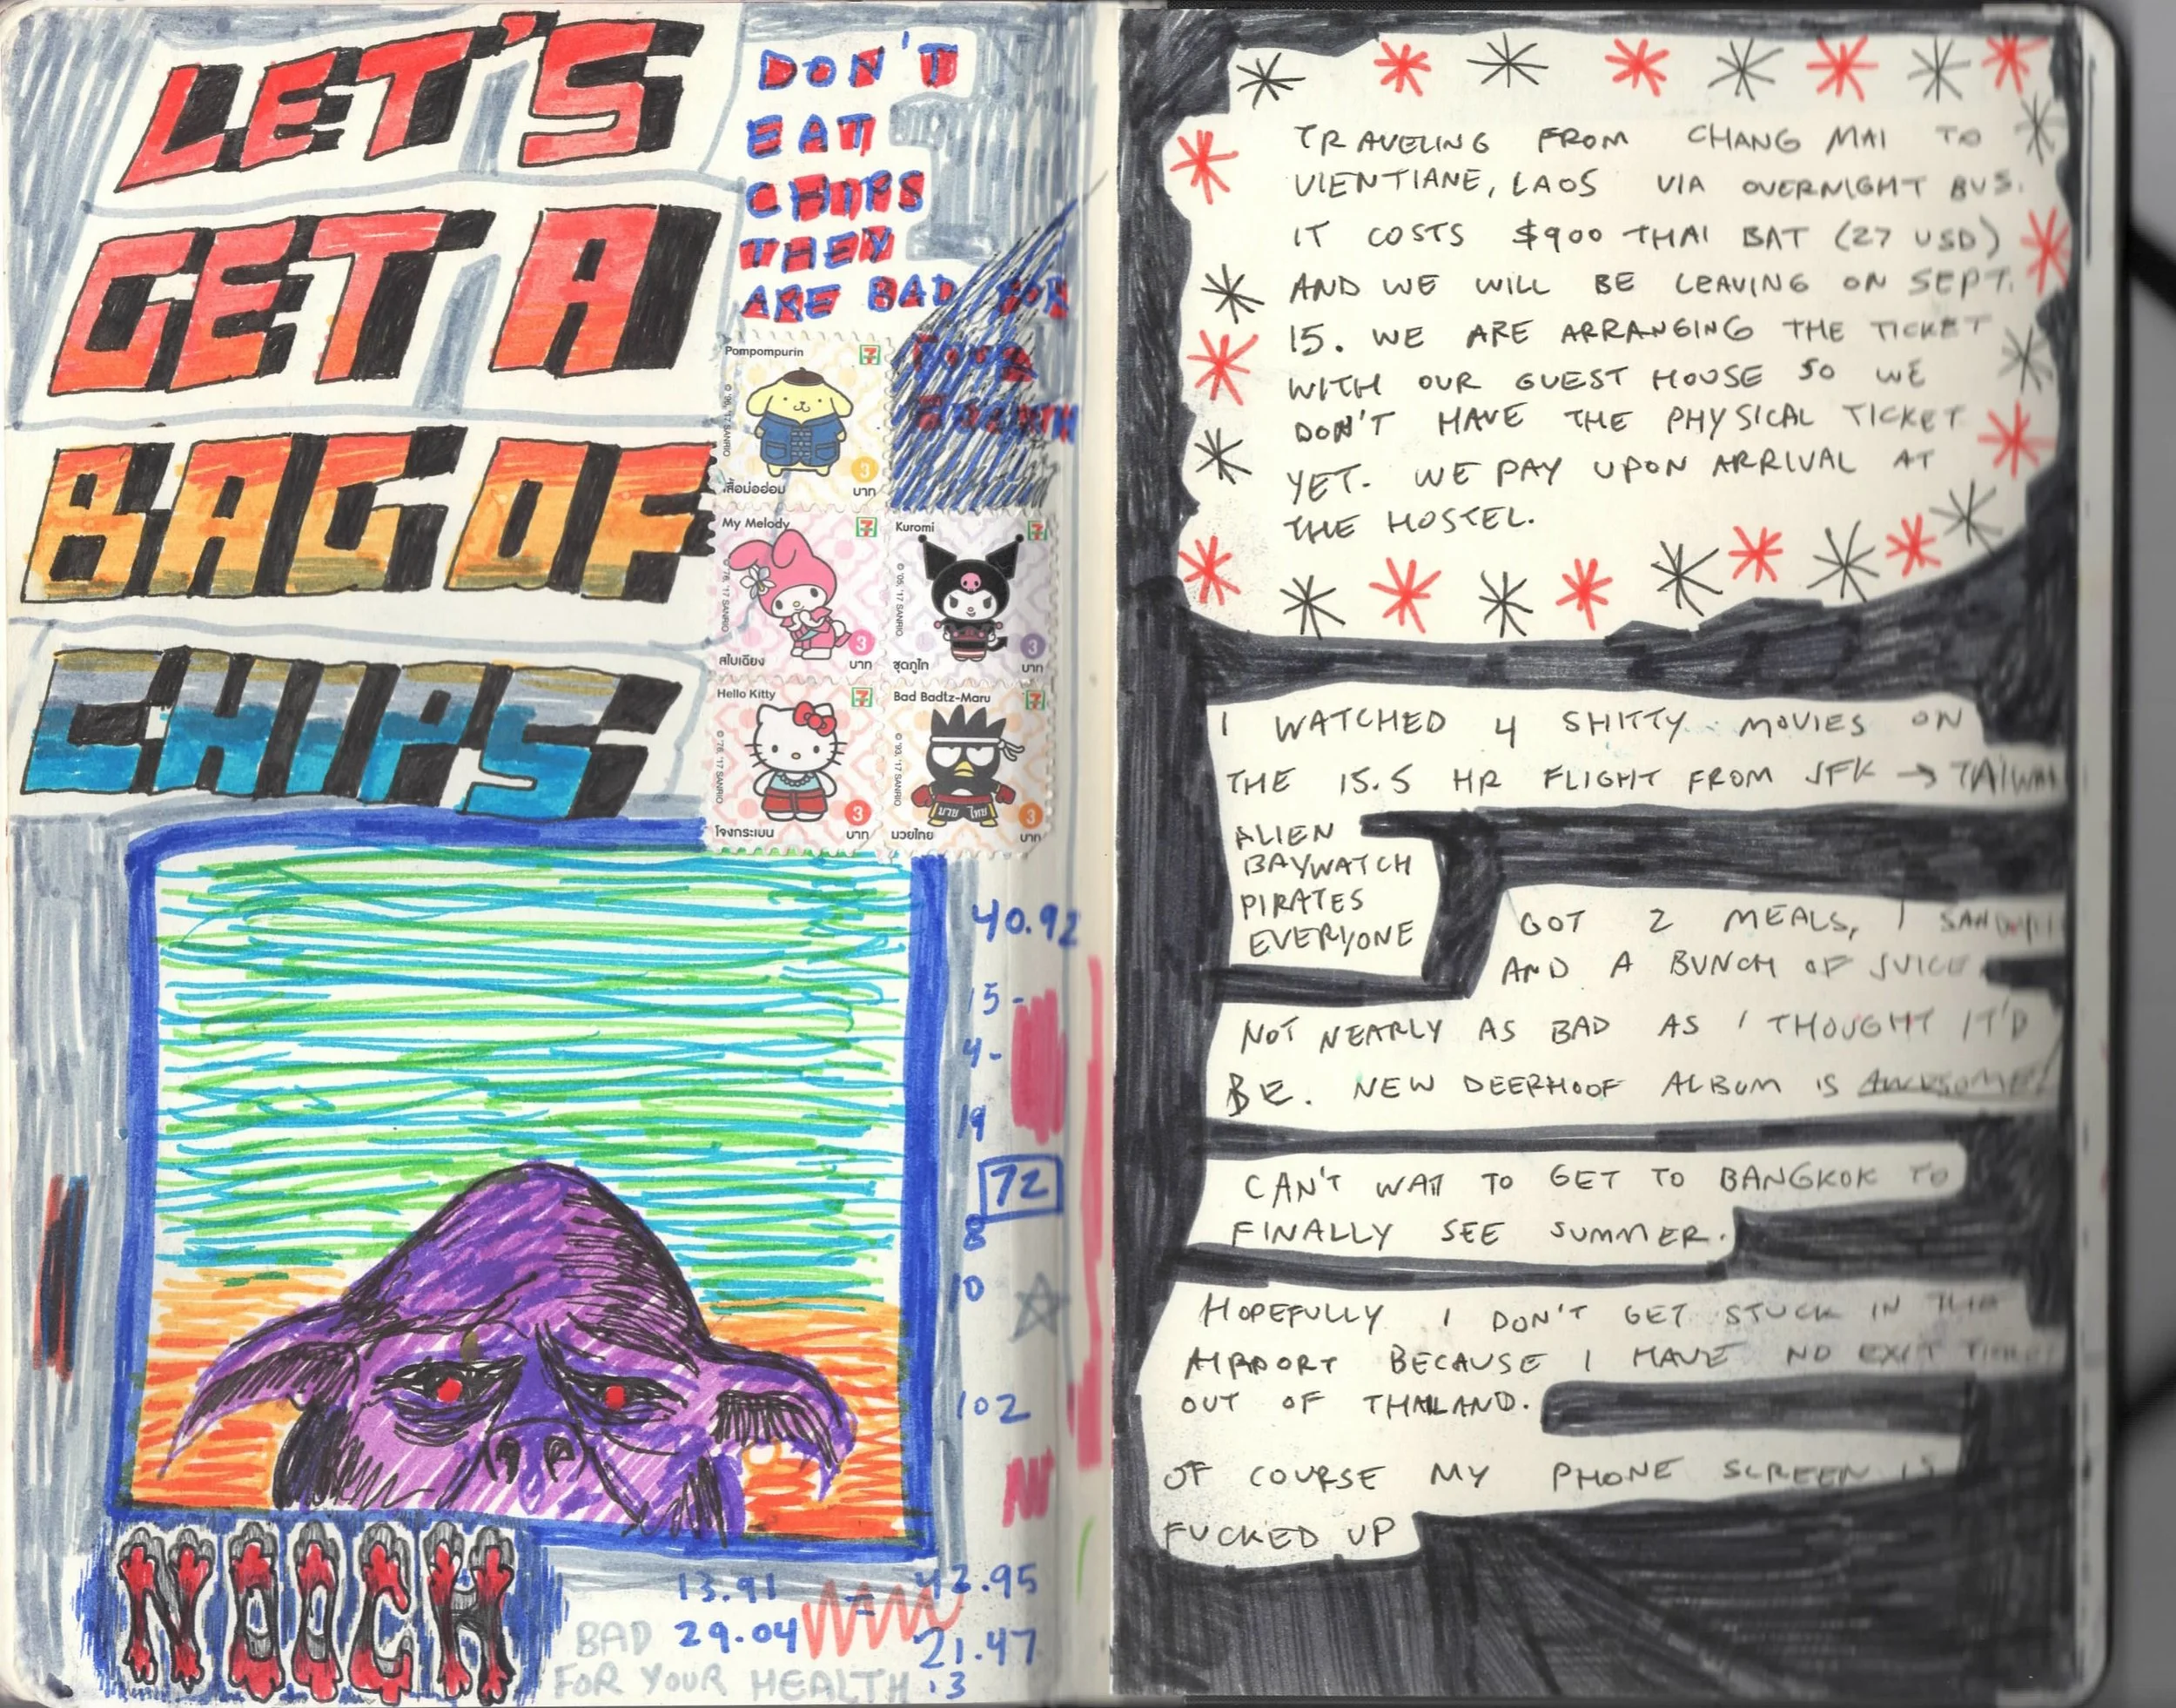 LET'S
GET A
BAG OF
CHIPS
DON'T
EAT
CHIPS
THEY
ARE BAD FOR
YOUR
HEALTH
Pompompurin
เสื้อม่อฮ่อม
3
บาท
My Melody
สไบเฉียง
3
บาท
Kuromi
ชุดภูไท
3
บาท
Hello Kitty
โจงกระเบน
3
บาท
Bad Badtz-Maru
มวย ไทย
มวยไทย
3
บาท
40.92
15-
4-
19
72
8
10
102
NOOCH
13.91
29.04
= 42.95
21.47
.3
BAD
FOR YOUR HEALTH
TRAVELING FROM CHANG MAI TO
VIENTIANE, LAOS VIA OVERNIGHT BUS.
IT COSTS $900 THAI BAT (27 USD)
AND WE WILL BE LEAVING ON SEPT.
15. WE ARE ARRANGING THE TICKET
WITH OUR GUEST HOUSE SO WE
DON'T HAVE THE PHYSICAL TICKET
YET. WE PAY UPON ARRIVAL AT
THE HOSTEL.
I WATCHED 4 SHITTY MOVIES ON
THE 15.5 HR FLIGHT FROM JFK → TAIWAN
ALIEN
BAYWATCH
PIRATES
EVERYONE
GOT 2 MEALS, 1 SANDWICH
AND A BUNCH OF JUICE
NOT NEARLY AS BAD AS I THOUGHT IT'D
BE. NEW DEERHOOF ALBUM IS AWESOME!
CAN'T WAIT TO GET TO BANGKOK TO
FINALLY SEE SUMMER.
HOPEFULLY I DON'T GET STUCK IN THE
AIRPORT BECAUSE I HAVE NO EXIT TICKET
OUT OF THAILAND.
OF COURSE MY PHONE SCREEN IS
FUCKED UP